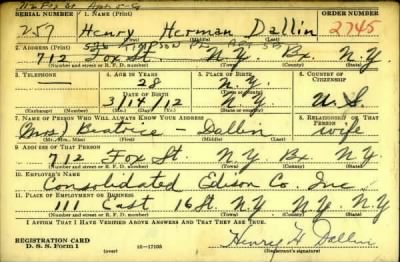 SERIAL NUMBER 1. NAME (Print) ORDER NUMBER
257 Henry Herman Dallin 2745
(First) (Middle) (Last)
2. ADDRESS (Print)
712 Fox St. N.Y. Bx. N.Y.
(Number and street or R. F. D. number) (Town) (County) (State)
3. TELEPHONE 4. AGE IN YEARS 5. PLACE OF BIRTH 6. COUNTRY OF CITIZENSHIP
28 N.Y.
DATE OF BIRTH
3/14/12 N.Y. U.S.
(Exchange) (Number) (Mo.) (Day) (Yr.) (State or country)
7. NAME OF PERSON WHO WILL ALWAYS KNOW YOUR ADDRESS 8. RELATIONSHIP OF THAT PERSON
(Mrs) Beatrice - Dallin wife
(Mr., Mrs., Miss) (First) (Middle) (Last)
9. ADDRESS OF THAT PERSON
712 Fox St. N.Y. Bx. N.Y.
(Number and street or R. F. D. number) (Town) (County) (State)
10. EMPLOYER'S NAME
Consolidated Edison Co. Inc
11. PLACE OF EMPLOYMENT OR BUSINESS
111 East 16 St. N.Y. N.Y. N.Y.
(Number and street or R. F. D. number) (Town) (County) (State)
I AFFIRM THAT I HAVE VERIFIED ABOVE ANSWERS AND THAT THEY ARE TRUE.
REGISTRATION CARD
D. S. S. Form 1 (over) 16-17105 Henry H Dallin
(Registrant's signature)